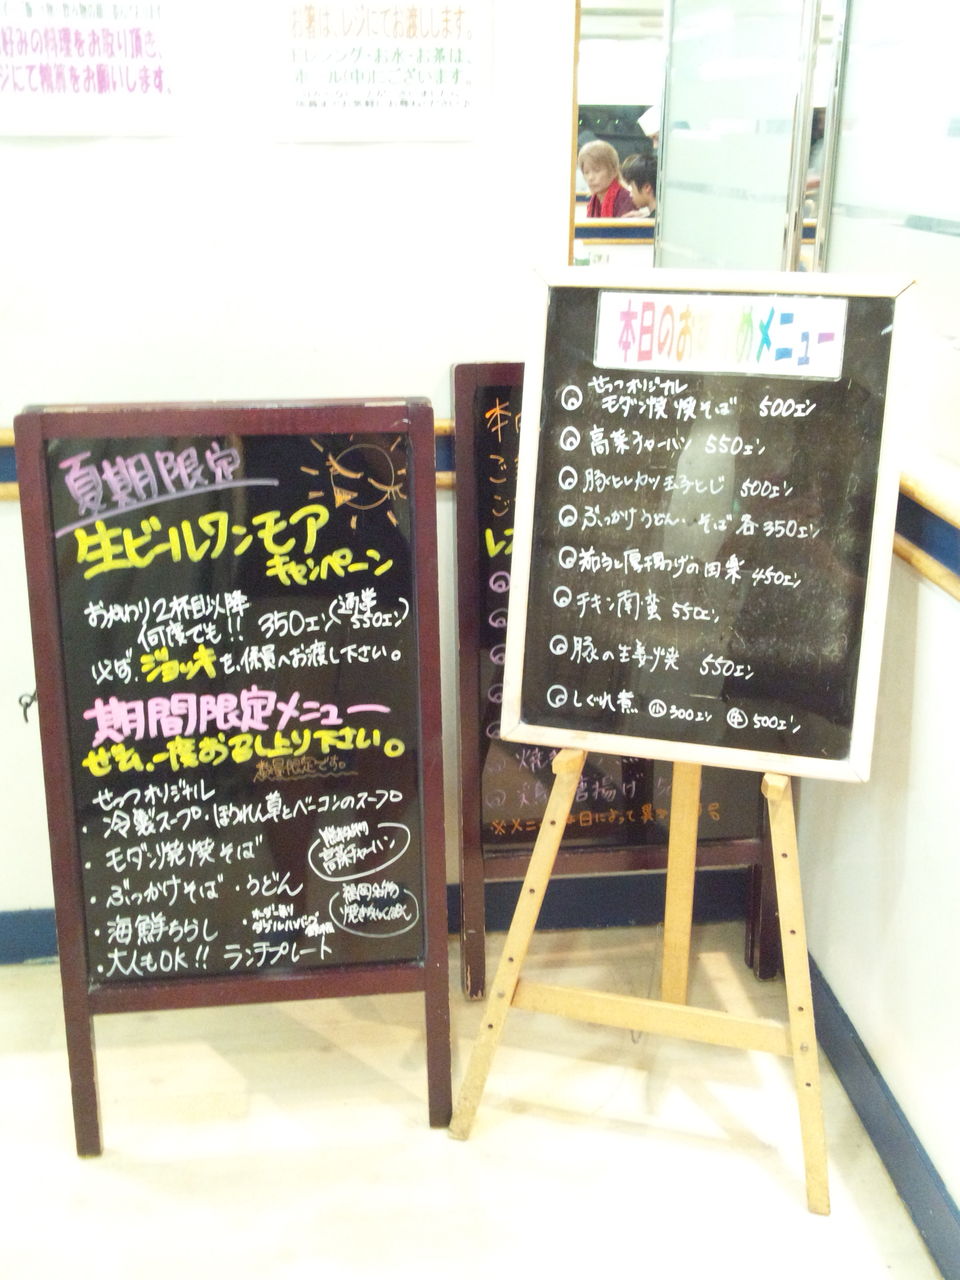 好みの料理をお取り頂き、
ジにて精算をお願いします。
お箸は、レジにてお渡しします。
ドレッシング・お水・お茶は、
ホール(中)にございます。
夏期限定
生ビールワンモア
キャンペーン
おかわり2杯目以降
何度でも!! 350エン(通常550エン)
ジョッキを、係員へお渡し下さい。
期間限定メニュー
ぜひ、一度お召し上り下さい。
数量限定です。
せっつオリジナル
・冷製スープ・ほうれん草とベーコンのスープ
・モダン焼焼そば
高菜チャーハン
・ぶっかけそば・うどん
福岡名物
・海鮮ちらし
・大人もOK!! ランチプレート
本日のおすすめメニュー
せっつオリジナル
モダン焼焼そば 500エン
高菜チャーハン 550エン
豚ヒレカツ玉子とじ 500エン
ぶっかけうどん・そば各350エン
茄子と厚揚げの田楽 450エン
チキン南蛮 550エン
豚の生姜焼 550エン
しぐれ煮 小300エン 中500エン
本
ご
ご
レ
焼
唐揚げ
※メニ は日によって異